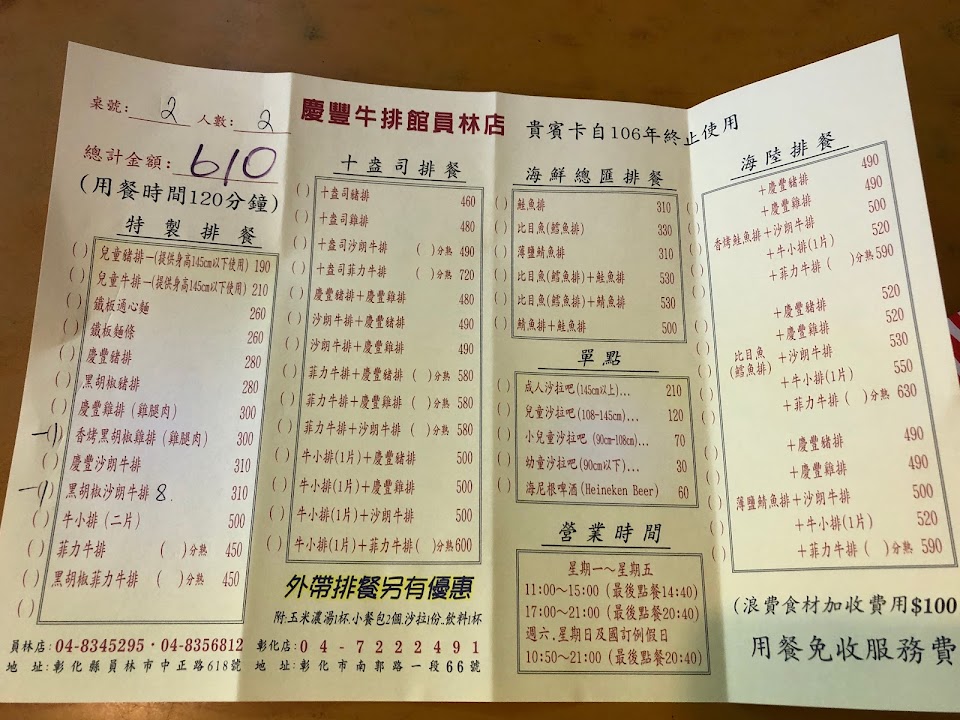 桌號: 2 人數: 2
總計金額: 610
(用餐時間120分鐘)
慶豐牛排館員林店
貴賓卡自106年終止使用
特製排餐
( ) 兒童豬排—(提供身高145cm以下使用) 190
( ) 兒童牛排—(提供身高145cm以下使用) 210
( ) 鐵板通心麵 260
( ) 鐵板麵條 260
( ) 慶豐豬排 280
( ) 黑胡椒豬排 280
( ) 慶豐雞排 (雞腿肉) 300
(1) 香烤黑胡椒雞排 (雞腿肉) 300
( ) 慶豐沙朗牛排 310
(1) 黑胡椒沙朗牛排 8. 310
( ) 牛小排 (二片) 500
( ) 菲力牛排 ( )分熟 450
( ) 黑胡椒菲力牛排 ( )分熟 450
( )
十盎司排餐
( ) 十盎司豬排 460
( ) 十盎司雞排 480
( ) 十盎司沙朗牛排 ( )分熟 490
( ) 十盎司菲力牛排 ( )分熟 720
( ) 慶豐豬排+慶豐雞排 480
( ) 沙朗牛排+慶豐豬排 490
( ) 沙朗牛排+慶豐雞排 490
( ) 菲力牛排+慶豐豬排 ( )分熟 580
( ) 菲力牛排+慶豐雞排 ( )分熟 580
( ) 菲力牛排+沙朗牛排 ( )分熟 580
( ) 牛小排(1片)+慶豐豬排 500
( ) 牛小排(1片)+慶豐雞排 500
( ) 牛小排(1片)+沙朗牛排 500
( ) 牛小排(1片)+菲力牛排 ( )分熟600
海鮮總匯排餐
( ) 鮭魚排 310
( ) 比目魚(鱈魚排) 330
( ) 薄鹽鯖魚排 310
( ) 比目魚(鱈魚排)+鮭魚排 530
( ) 比目魚(鱈魚排)+鯖魚排 530
( ) 鯖魚排+鮭魚排 500
單點
( ) 成人沙拉吧(145cm以上)... 210
( ) 兒童沙拉吧(108-145cm)... 120
( ) 小兒童沙拉吧 (90cm-108cm)... 70
( ) 幼童沙拉吧(90cm以下)... 30
( ) 海尼根啤酒(Heineken Beer) 60
營業時間
星期一～星期五
11:00～15:00 (最後點餐14:40)
17:00～21:00 (最後點餐20:40)
週六.星期日及國訂例假日
10:50～21:00 (最後點餐20:40)
海陸排餐
( ) +慶豐豬排 490
( ) +慶豐雞排 490
( ) 香烤鮭魚排+沙朗牛排 500
( ) +牛小排(1片) 520
( ) +菲力牛排 ( )分熟590
( ) +慶豐豬排 520
( ) +慶豐雞排 520
( ) 比目魚(鱈魚排) +沙朗牛排 530
( ) +牛小排(1片) 550
( ) +菲力牛排 ( )分熟 630
( ) +慶豐豬排 490
( ) +慶豐雞排 490
( ) 薄鹽鯖魚排+沙朗牛排 500
( ) +牛小排(1片) 520
( ) +菲力牛排 ( )分熟 590
外帶排餐另有優惠
附.玉米濃湯1杯.小餐包2個.沙拉1份..飲料1杯
(浪費食材加收費用$100
用餐免收服務費
員林店: 04-8345295・04-8356812
地 址:彰化縣員林市中正路618號
彰化店: 04-7222491
地 址:彰化市南郭路一段66號